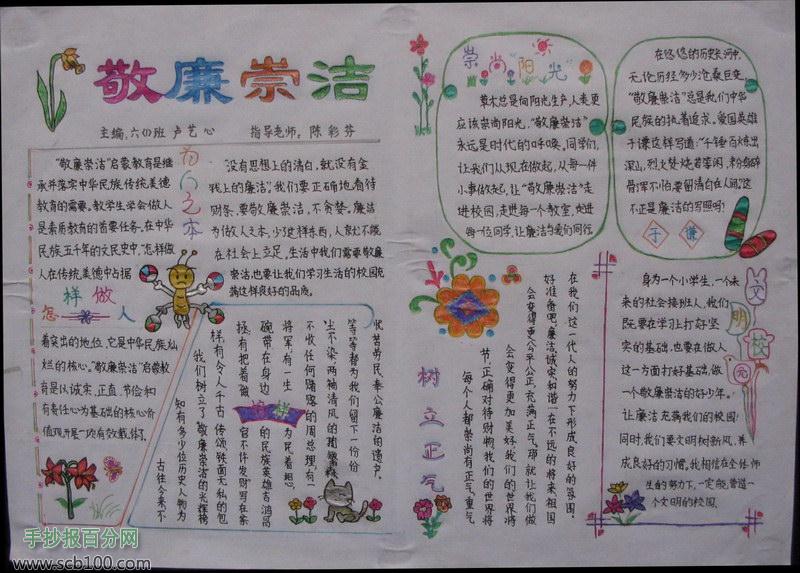 敬廉崇洁
主编:六(1)班 卢艺心 指导老师:陈彩芬
"敬廉崇洁"启蒙教育是继
承并落实中华民族传统美德
教育的需要。教学生学会做人
是素质教育的首要任务,在中华
民族五千年的文民史中,怎样做
人在传统美德中占据
怎样做人
着突出的地位,它是中华民族灿
烂的核心。"敬廉崇洁"启蒙教
育是以诚实、正直、节俭和
有责任心为基础的核心价
值观,开展一项有效载体。
为人之本
没有思想上的清白,就没有金
钱上的廉洁,我们要正确地看待
财条,要敬廉崇洁,不贪婪。廉洁
为做人之本,少这样东西,人家就不能
在社会上立足,生活中我们需要敬廉
崇洁,也要让我们学习生活的校园充
满这样良好的品质。
榜样
古往今来不
知有多少位历史人物为
我们树立了"敬廉崇洁"的光辉榜
样,有令人千古传颂铁面无私的包
拯,有把着做官不许发财写在茶
碗带在身边的民族英雄吉鸿昌
将军,有一生为民着想、
不收任何赌赂的周总理,有一
尘不染、两袖清风的
等等都为我们留下一份份
忧苦劳民、奉公廉洁的遗产。
崇尚"阳光"
草木总是向阳光生产,人类更
应该崇尚阳光,"敬廉崇洁"
永远是时代的呼唤。同学们,
让我们从现在做起,从每一件
小事做起,让"敬廉崇洁"走
进校园,走进每一个教室,走进
每一位同学,让廉洁与爱们同行
在悠悠的历史长河中,
无论历经多少沧桑巨变,
"敬廉崇洁"总是我们中华
民族的执着追求。爱国英雄
于谦这样写道:"千锤百炼出
深山,烈火焚烧若等闲,粉身碎
骨浑不怕,要留清白在人间。"这
不正是廉洁的写照吗!
于谦
树立正气
每个人都崇尚有正气,重气
节,正确对待财物,我们的世界将
会变得更加美好,我们的世界将
会变得更公平公正,充满正气。那就让我们做
好准备吧,廉洁、诚实和谐一在不远的将来,祖国
在我们这一代人的努力下形成良好的氛围。
文明校园
身为一个小学生,一个未
来的社会接班人,我们
既要在学习上打好坚
实的基础,也要在做人
这一方面打好基础,做
一个敬廉崇洁的好少年。
让廉洁充满我们的校园!
同时,我们要文明树新风,养
成良好的习惯,我相信在全体师
生的努力下,一定能营造一
个文明的校园。
手抄报百分网
www.scb100.com